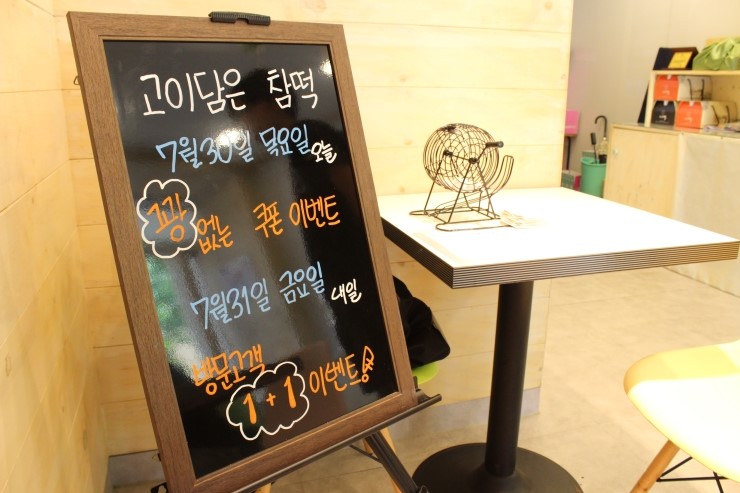 고이담은 참떡
7월 30일 목요일 오늘
꽝 없는 쿠폰 이벤트
7월 31일 금요일 내일
방문고객
1+1 이벤트